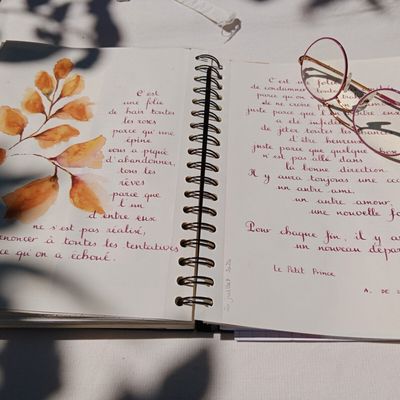 C'est
une folie
de haïr toutes
les roses
parce qu'une
épine
vous a piqué,
d'abandonner
tous les
rêves
parce que
l'un
d'entre eux
ne s'est pas réalisé,
enoncer à toutes les tentatives
ce qu'on a échoué.
C'est une
de condamner toutes
parce qu'on
de ne croire
juste parce que l'un d'entre eux
a été
de jeter toutes les
d'être heureux
juste parce que quelque
n'est pas allé dans
la bonne direction.
Il y aura toujours une occ
un autre ami,
un autre amour,
une nouvelle fo
Pour chaque fin, il y a
un nouveau dépar
Le Petit Prince
A. DE
juillet